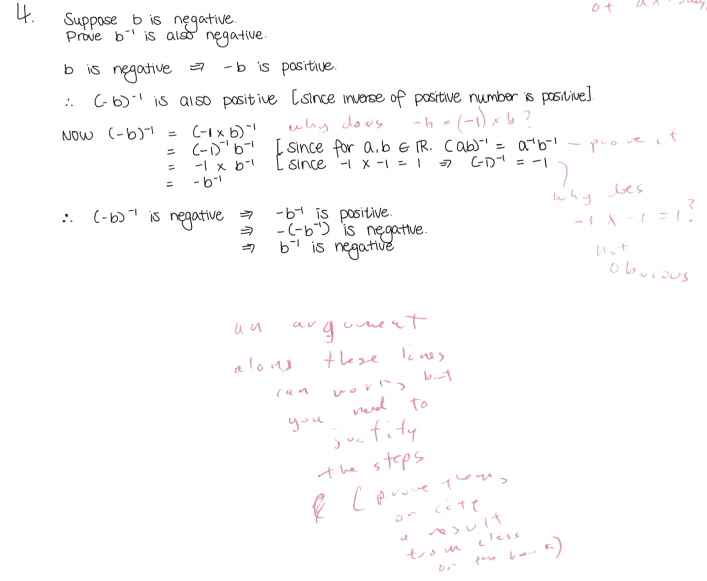 of ax
4. Suppose b is negative.
Prove b⁻¹ is also negative.
b is negative ⇒ -b is positive.
∴ (-b)⁻¹ is also positive [since inverse of positive number is positive].
Now (-b)⁻¹ = (-1 × b)⁻¹ why does -b = (-1) × b?
= (-1)⁻¹ b⁻¹ [since for a, b ∈ ℝ. (ab)⁻¹ = a⁻¹b⁻¹ – prove it
= -1 × b⁻¹ [since -1 × -1 = 1 ⇒ (-1)⁻¹ = -1
= -b⁻¹
why does
-1 × -1 = 1?
not
obvious
∴ (-b)⁻¹ is negative ⇒ -b⁻¹ is positive.
⇒ -(-b⁻¹) is negative.
⇒ b⁻¹ is negative
an argument
along these lines
can work, but
you need to
justify
the steps
(prove them,
or cite
a result
from class
or the book)